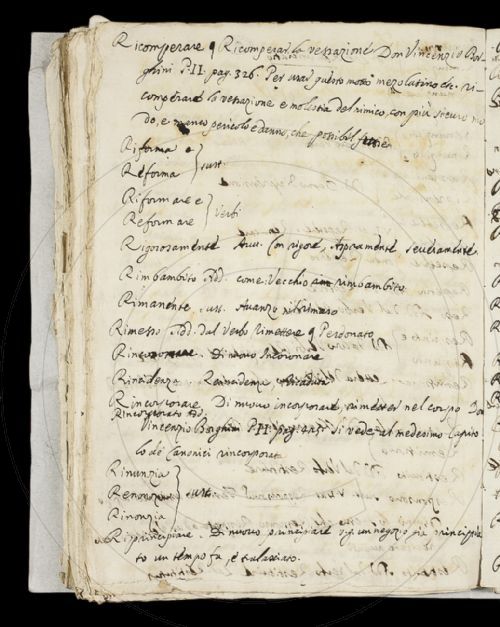 Ricomperare q Ricomperar la vessazione Don Vincenzio Bor-
ghini P. II. pag. 326. Per usar questo motto mezo latino che ri-
comperare la vessazione e molestia del nimico, con più sicuro mo
do, e manco pericolo e danno, che possibil fusse
Riforma e
Reforma } sust.
Riformare e
Reformare } Verbi
Rigorosamente Avv. Con rigore, Aspramente severamente
Rimbambito Add. come Vecchio rimbambito
Rimanente sust. Avanzo
Rimesso Add. dal Verbo Rimettere q Perdonato
Rincoronare. Di nuovo Incoronare
Rincidenza. Reincidenza Ricaduta
Rincorporare Di nuovo incorporare, rimetter nel corpo Don
Rincorporato Add.
Vincenzio Borghini P. II. pag. si vede al medesimo Capito
lo de Canonici rincorporata
Rinunzia
Renonzia } sust.
Rinonzia
Riprincipiare. Di nuovo principiare un negozio già principia
to un tempo fa, e tralasciato.